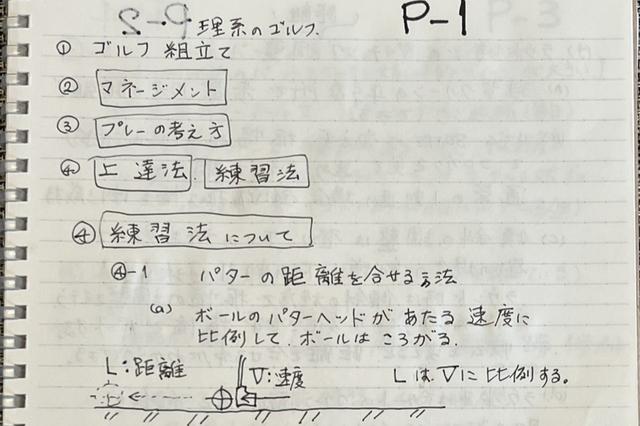 理系のゴルフ. P-1
① ゴルフ 組立て
② マネージメント
③ プレーの考え方
④ 上達法. 練習法
④ 練習法について
④-1 パターの距離を合せる方法
(a) ボールのパターヘッドがあたる速度に
比例して.ボールはころがる.
L:距離 V:速度 LはVに比例する。